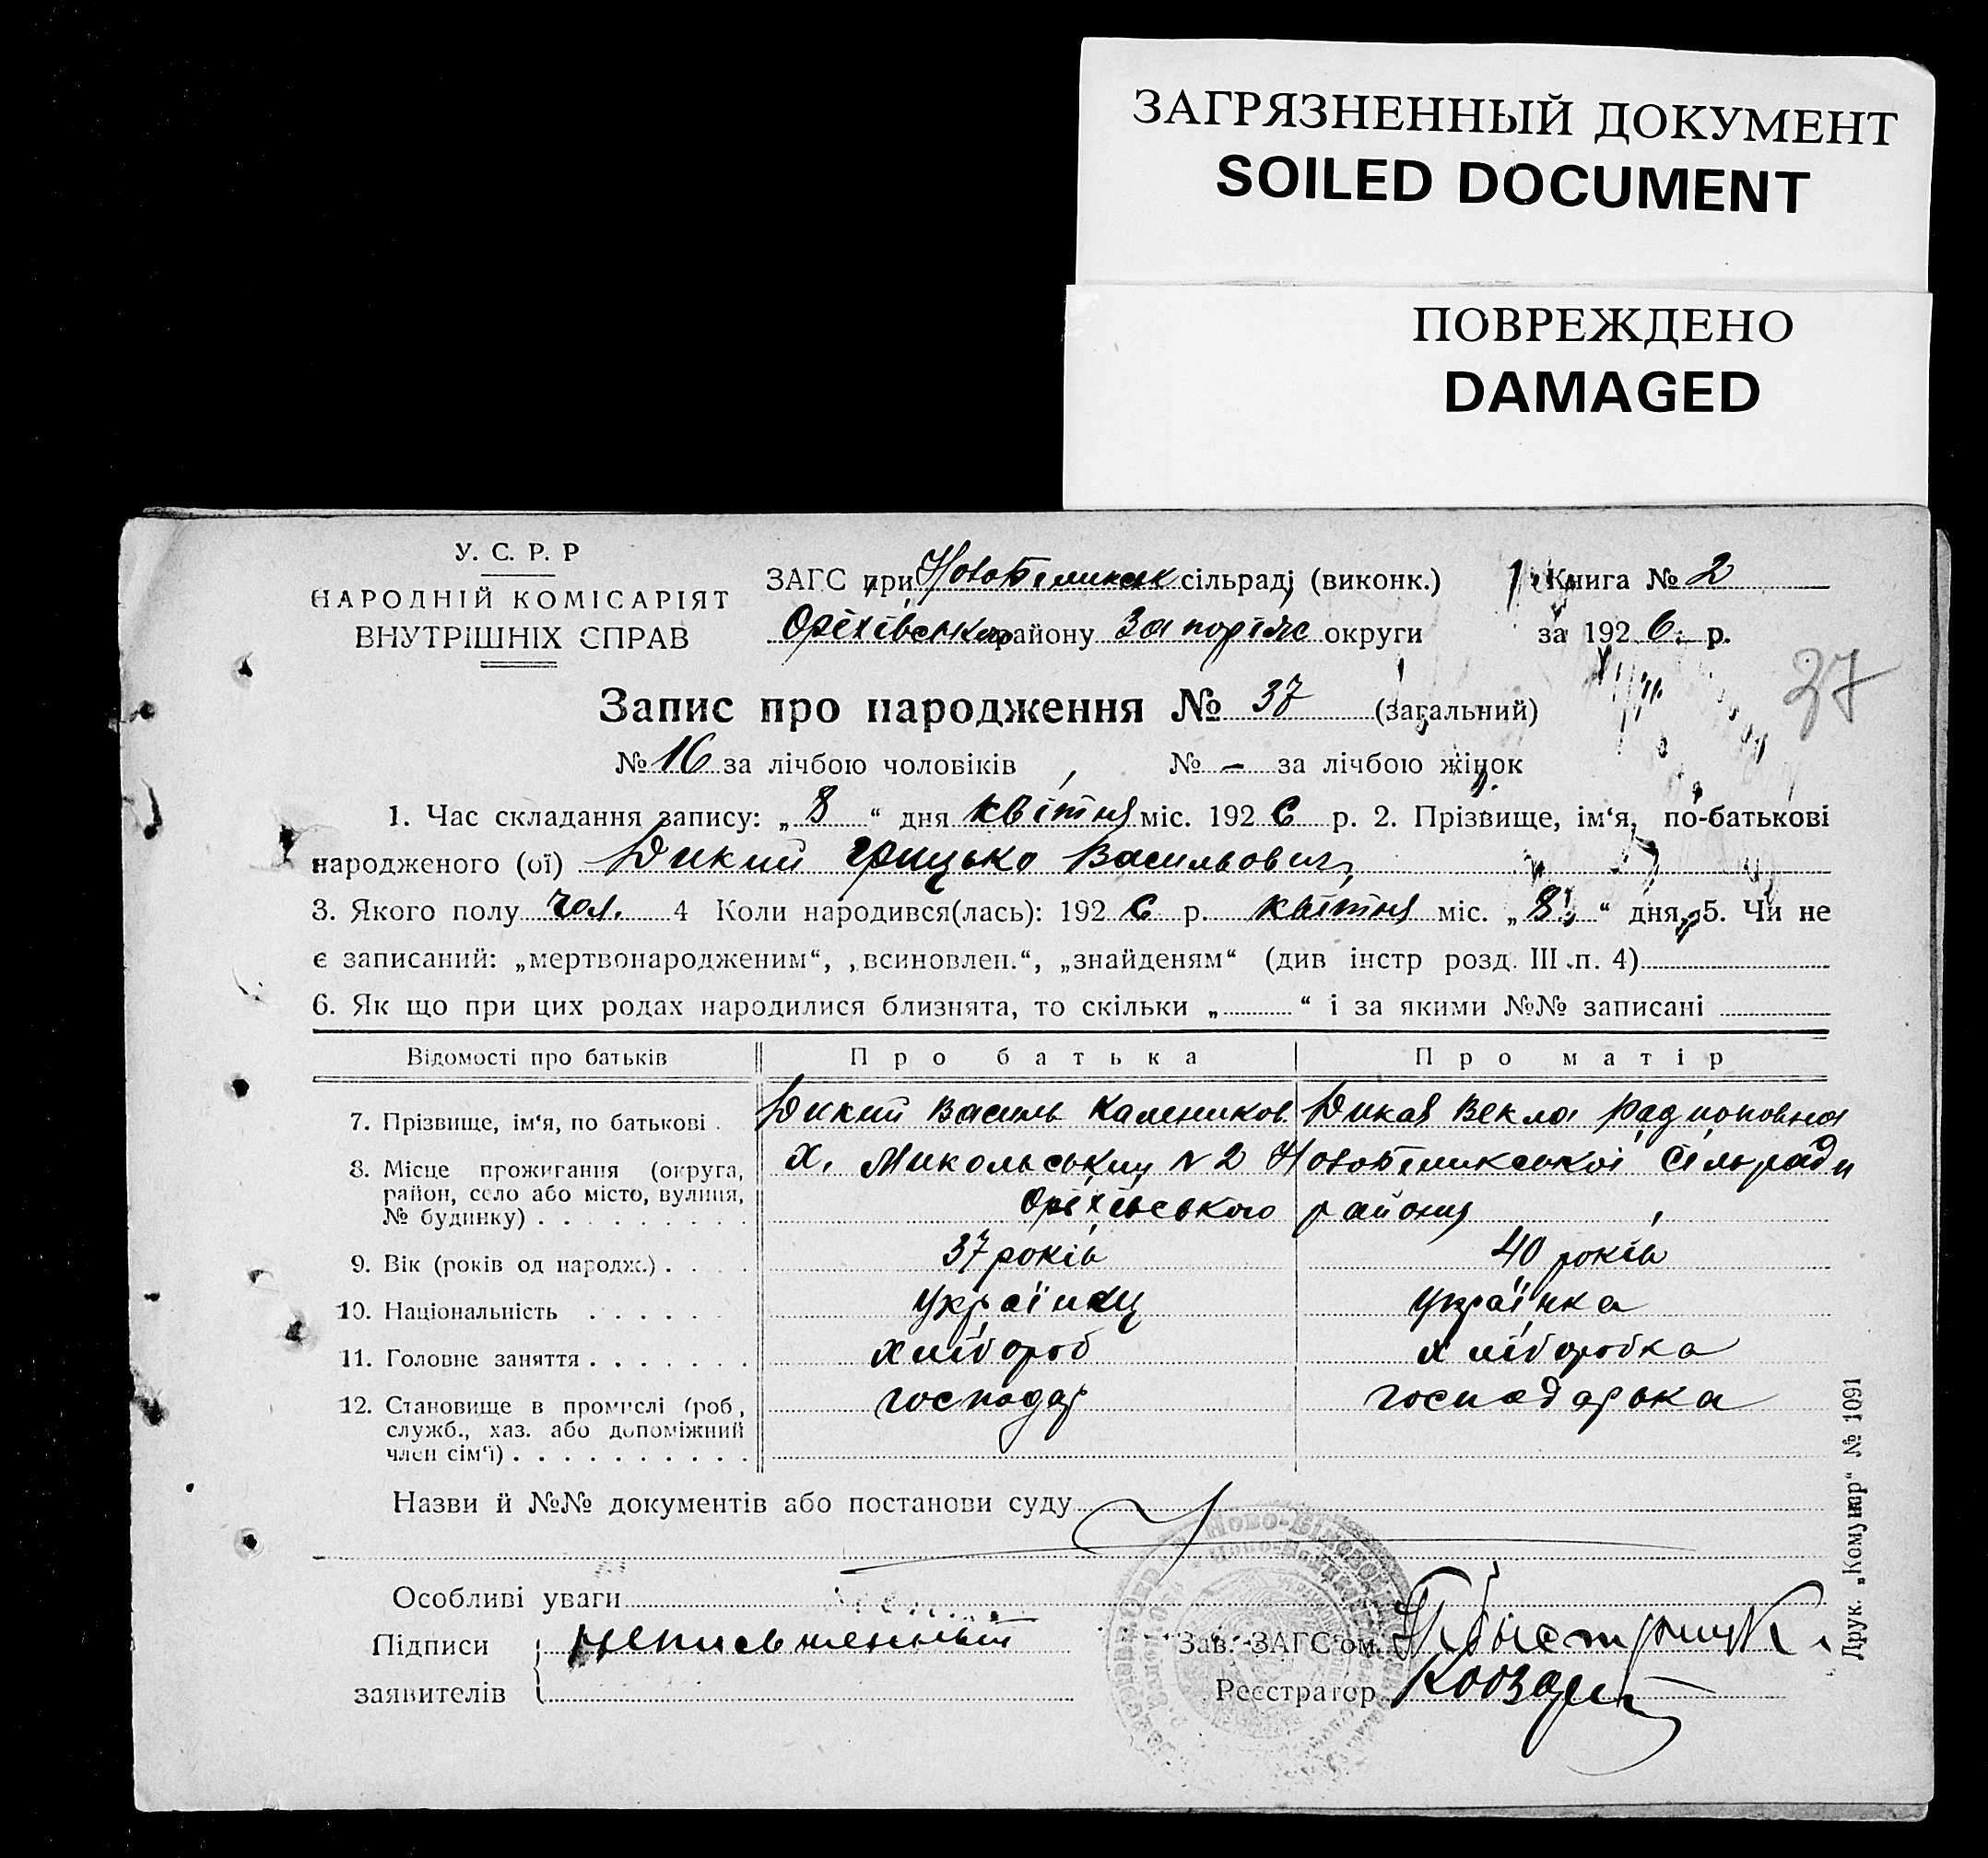 ЗАГРЯЗНЕННЫЙ ДОКУМЕНТ
SOILED DOCUMENT
ПОВРЕЖДЕНО
DAMAGED
У. С. Р. Р
НАРОДНІЙ КОМІСАРІЯТ
ВНУТРІШНІХ СПРАВ
ЗАГС при сільраді (виконк.) Книга № 2
Оріхівськ району Запоріж округи за 1926. р.
37
Запис про народження № 37 (загальний)
№ 16 за лічбою чоловіків № – за лічбою жінок
1. Час складання запису: „ 8 “ дня квітня міс. 1926 р. 2. Прізвище, ім‘я, по-батькові
народженого (ої) Дикий Грицько Васильович
3. Якого полу чол. 4 Коли народився(лась): 1926 р. квітня міс. „ 8 “ дня 5. Чи не
є записаний: „мертвонародженим“, „всиновлен.“, „знайденям“ (див інстр розд. III п. 4)
6. Як що при цих родах народилися близнята, то скільки „ “ і за якими №№ записані
Відомості про батьків Про батька Про матір
7. Прізвище, ім‘я, по батькові . Дикий Василь Калеников. Дикая Векла Радионовна
8. Місце прожигання (округа, х. Микольський N 2 сільради
район, село або місто, вулиця,
№ будинку) . . . . . . . . . Оріхівського району
9. Вік (років од народж.) . . . . 37 років 40 років
10. Національність . . . . . . українец українка
11. Головне заняття . . . . . . . хлібороб хліборобка
12. Становище в промислі (роб, господар господарька
служб., хаз. або допоміжний
член сім‘ї) . . . . . . . . . .
Назви й №№ документів або постанови суду
Особливі уваги
Підписи неписьменный Зав. ЗАГС‘ом
заявителів Реєстратор
Друк. „Комунар“ № 1091